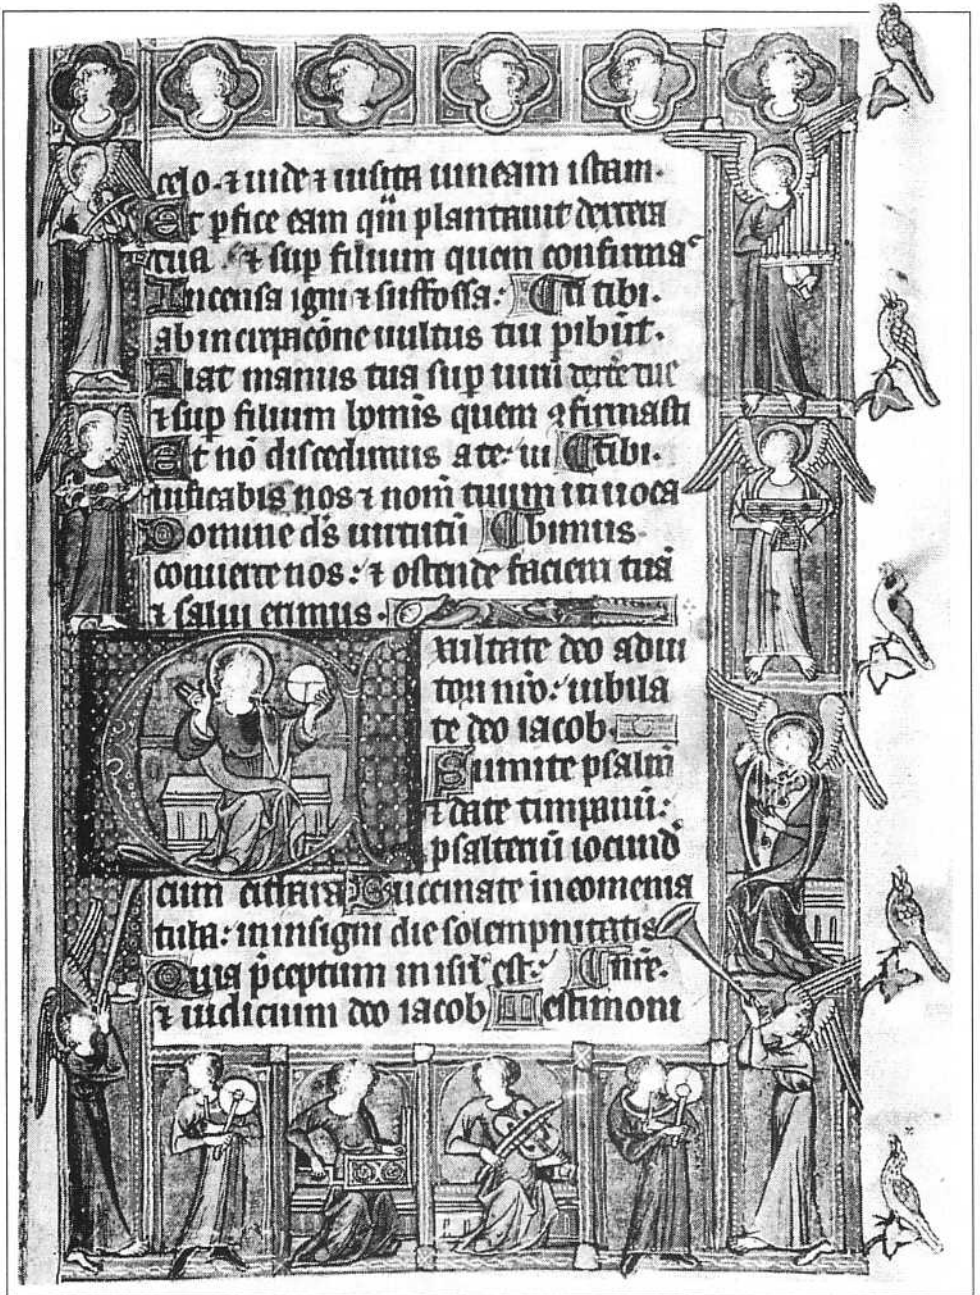 celo · ⁊ uide ⁊ uisita uineam istam ·
Et pfice eam quā plantauit dextera
tua · ⁊ sup filium quem confirma
Incensa igni ⁊ suffossa : Cti tibi ·
ab increpacōne uultus tui pibūt ·
Fiat manus tua sup uirū dextre tue
⁊ sup filium homīs quem ꝯfirmasti
Et nō discedimus a te : ui Ctibi ·
uificabis nos ⁊ nom̄ tuum inuoca
Domine ds̄ uirtutū Cbimus ·
conuerte nos : ⁊ ostende faciem tuā
⁊ salui erimus ·
Exultate deo adiu
tori nr̄o : iubila
te deo iacob ·
Sumite psalmū
⁊ date timpanū :
psalteriū iocund̄
cum cithara Buccinate in eomenia
tuba : in insigni die solempnitatis
Quia p̄ceptum in isrl̄ est : Cn̄re ·
⁊ iudicium deo iacob Testimoni